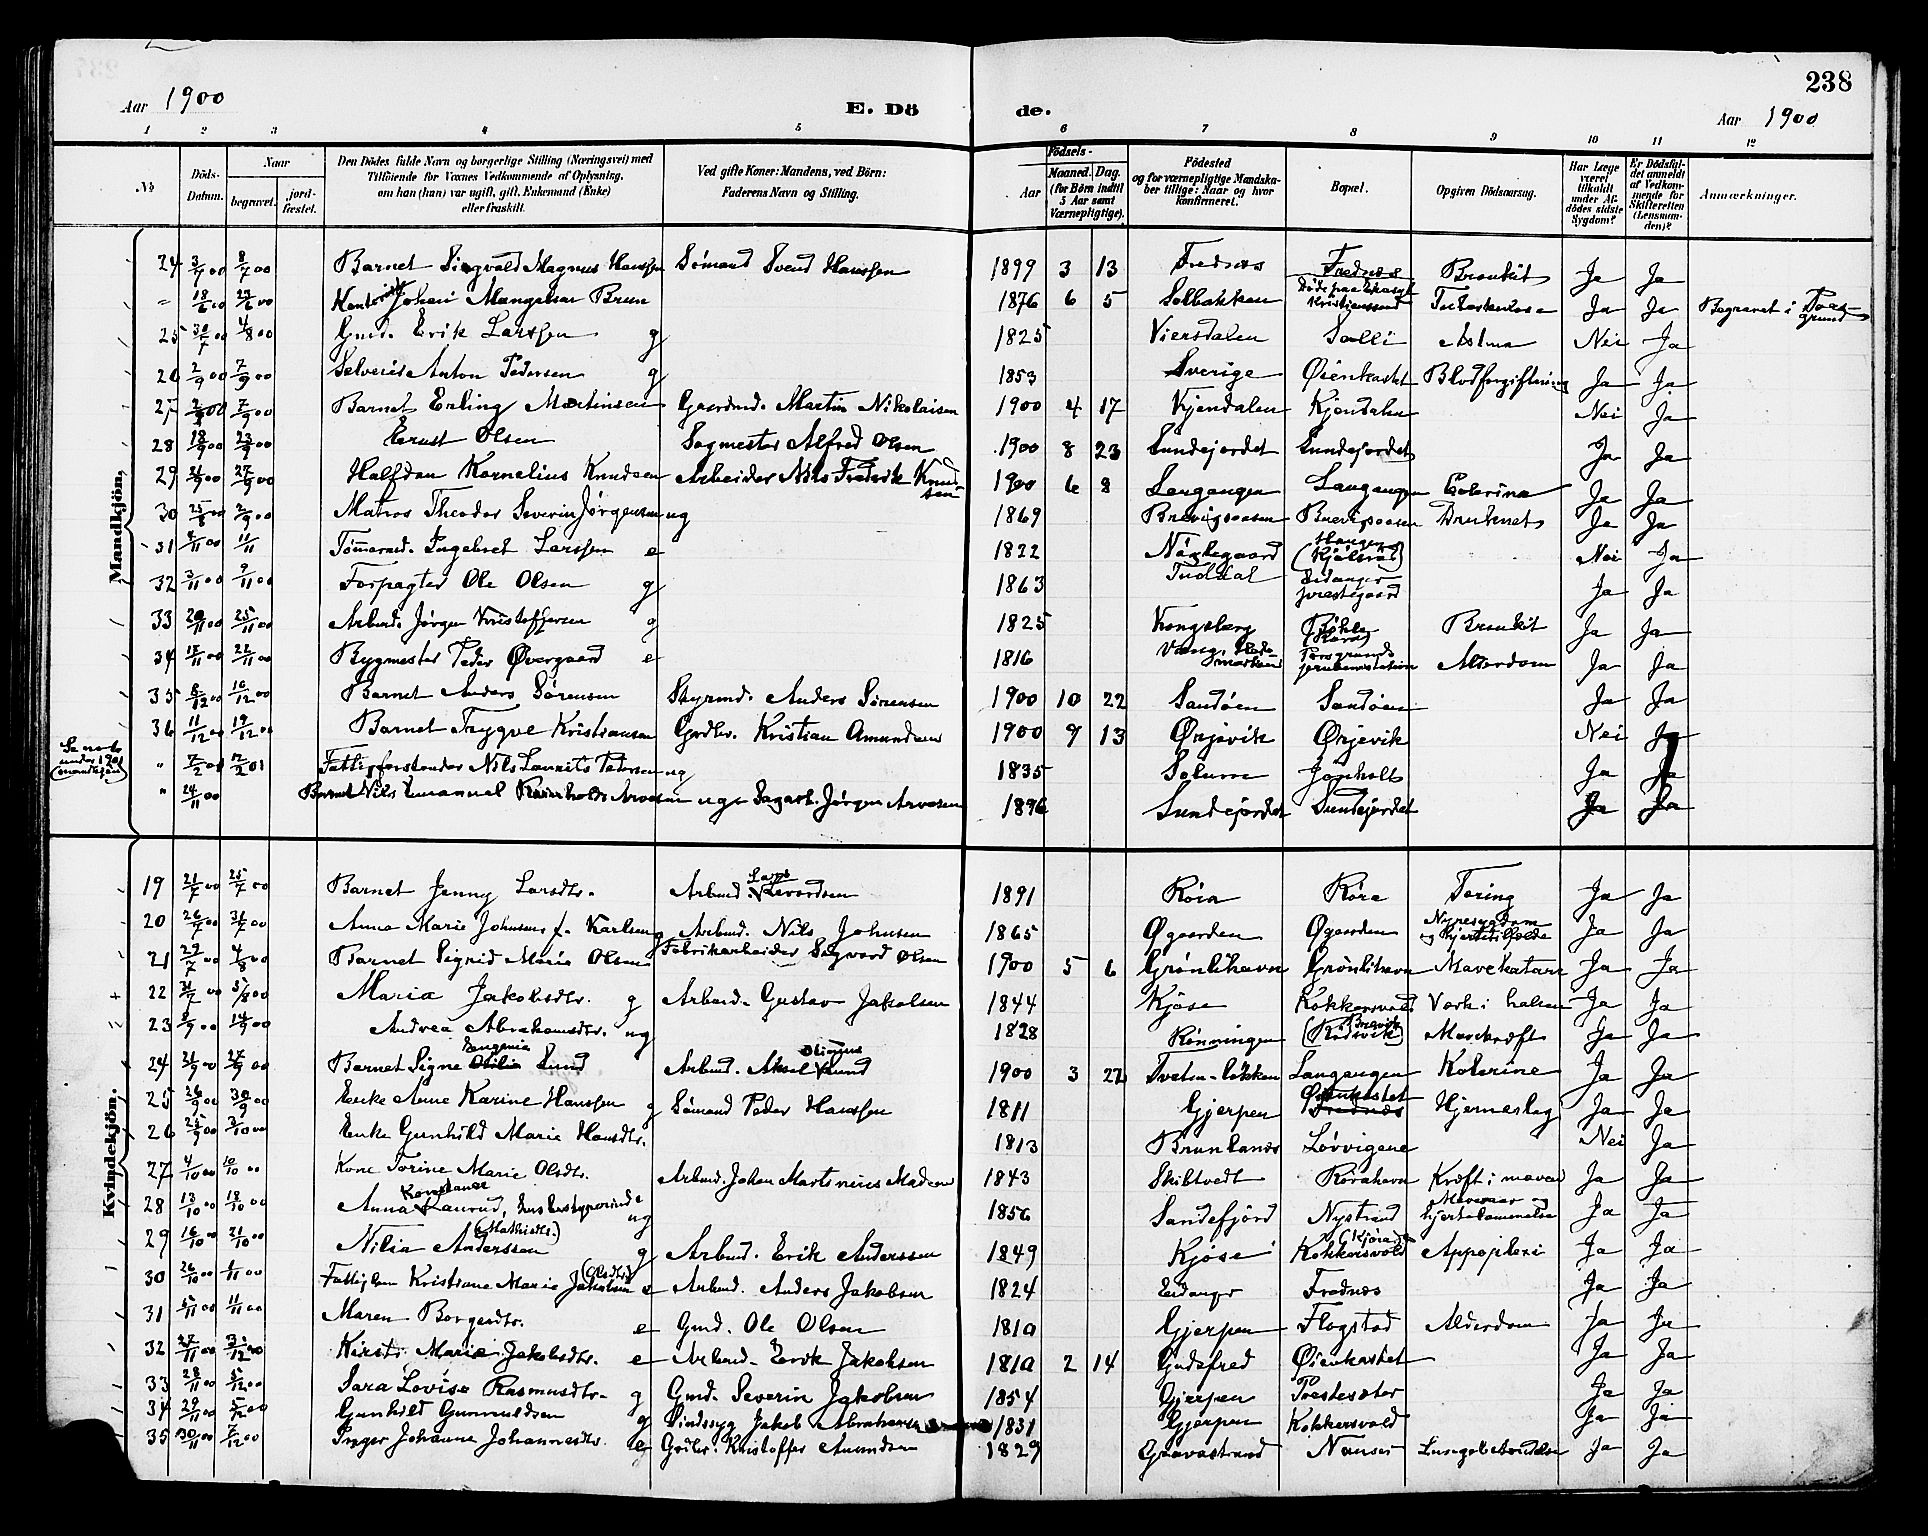 238
Aar 1900 E. Dö de. Aar 1900
1 2 3 4 5 6 7 8 9 10 11 12
№ Döds-Datum. Naar begravet. jord-fæstet. Den Dödes fulde Navn og borgerlige Stilling (Næringsvei) med Tilföiende for Voxnes Vedkommende af Oplysning, om han (hun) var ugift, gift, Enkemand (Enke) eller fraskilt. Ved gifte Koner: Mandens, ved Börn: Faderens Navn og Stilling. Födsels- Aar Maaned. Dag. (for Börn indtil 5 Aar samt Værnepligtige). Födested og for værnepligtige Mandskaber tillige: Naar og hvor konfirmeret. Bopæl. Opgiven Dödsaarsag. Har Læge været tilkaldt under Afdödes sidste Sygdom? Er Dödsfaldet anmeldt af Vedkommende for Skifteretten (Lensmanden)? Anmærkninger.
Mandkjön,
24 3/7 00 8/7 00 Barnet Sigvald Magnus Hanssen Sömand Svend Hanssen 1899 3 13 Frednæs Frednæs Bronkit Ja Ja
" 18/6 00 27/6 00 Johan Mangelsen Brun 1876 6 5 Solbakken Döde paa Kristianssand Tuberkulose Ja Ja Begravet i Porsgrund
25 30/7 00 4/8 00 Gmd. Erik Larssen g 1825 Viersdalen Salli Astma Nei Ja
26 2/9 00 7/9 00 Selveier Anton Pedersen g 1853 Sverige Öienkastet Blodforgiftning Ja Ja
27 2/9 00 7/9 00 Barnet Erling Martinsen Gaardmd. Martin Nikolaisen 1900 4 17 Kjendalen Kjendalen Nei Ja
28 18/9 00 23/9 00 Ernst Olsen Sagmester Alfred Olsen 1900 8 23 Sundejordet Sundejordet Ja Ja
29 21/9 00 27/9 00 Halfdan Kornelius Knudsen Arbeider Nils Fredrik Knudsen 1900 6 8 Langangen Langangen Kolerina Ja Ja
30 25/8 00 2/9 00 Matros Theodor Severin Jörgensen ug 1869 Brevigsaasen Brevigsaasen Druknet Ja Ja
31 /11 00 11/11 Tömmermd. Ingebret Larssen e 1822 Nöklegaard Nei Ja
32 3/11 00 9/11 00 Forpagter Ole Olsen g 1863 Tuddal Eidanger prestegaard Ja Ja
33 20/11 00 25/11 00 Arbmd. Jörgen Kristoffersen g 1825 Kongsberg Bronkit Ja Ja
34 18/11 00 22/11 00 Bygmester Peder Övergaard e 1816 Vang, Hedemarken Porsgrunds Alderdom Ja Ja
35 8/12 00 16/12 00 Barnet Anders Sörensen Styrmd. Anders Sörensen 1900 10 22 Sandöen Sandöen Ja Ja
36 11/12 00 19/12 00 Barnet Trygve Kristiansen Grdbr. Kristian Amundsen 1900 9 13 Örjevik Örjevik Nei Ja
Se nots under 1901 (mandkjön) " 7/2 01 17/2 01 Fattigforstander Nils Laurits Petersen ug 1835 Solum Jönholt Ja Ja
" 24/11 00 Barnet Nils Emanuel Arvesen ug Sagarb. Jörgen Arvesen 1896 Sundejordet Sundejordet Ja Ja
Kvindekjön.
19 21/7 00 25/7 00 Barnet Jenny Larsdtr. Arbmd. Lars Levordsen 1891 Röra Röra Tæring Ja Ja
20 26/7 00 31/7 00 Anna Marie Johnsen f. Karlsen g Arbmd. Nils Johnsen 1865 Øgaarden Øgaarden Nyresygdom og hjertetilfælde Ja Ja
21 29/7 00 4/8 00 Barnet Sigrid Marie Olsen Fabrikarbeider Sigvard Olsen 1900 5 6 Grönlihavn Grönlihavn Mavekatarr Ja Ja
22 31/7 00 5/8 00 Maria Jakobsdtr. g Arbmd. Gustav Jakobsen 1844 Kjöse Kokkersvold Værk i halsen Ja Ja
23 8/9 00 14/9 00 Andrea Abrahamsdtr. ug 1828 Rönningen Brevik Mavekræft Ja Ja
24 21/9 00 27/9 00 Barnet Signe Eugenia Lund Arbmd. Aksel Olinius Lund 1900 3 22 Tveten-lökken Langangen Kolerine Ja Ja
25 26/9 00 30/9 00 Enke Anne Karine Hanssen g Sömand Peder Hanssen 1811 Gjerpen Öienkastet Hjerneslag Ja Ja
26 25/9 00 3/10 00 Enke Gunhild Marie Hansdtr. 1813 Brunlanæs Lövvigene Nei Ja
27 4/10 00 10/10 00 Kone Torine Marie Olsdtr. Arbmd. Johan Martinius Madsen 1843 Skibtvedt Rörahavn Kræft i maven Ja Ja
28 13/10 00 18/10 00 Anna Konstance Laurud, ug 1856 Sandefjord Nystrand Mavesaar og hjertelammelse Ja Ja
29 16/10 00 21/10 00 Nilia Anderssen (Mathisdtr.) g Arbmd. Erik Anderssen 1849 Kjöse Kokkersvold Appoplexi Ja Ja
30 26/10 00 1/11 00 Fattiglem Kristiane Marie Jakobsen (Olsdtr.) e Arbmd. Anders Jakobsen 1824 Eidanger Frednæs Ja Ja
31 5/11 00 11/11 00 Maren Borgersdtr. e Gmd. Ole Olsen 1810 Gjerpen Flogstad Alderdom Ja Ja
32 27/11 00 3/12 00 Kirsti Marie Jakobsdtr. e Arbmd. Erik Jakobsen 1810 2 14 Gudefred Öienkastet Ja Ja
33 28/11 00 5/12 00 Sara Lovise Rasmusdtr. g Gmd. Severin Jakobsen 1854 Gjerpen Prestesæter Ja Ja
34 29/11 00 5/12 00 Gunhild Gunnuldsen g Sindssyg Jakob Abrahamsen 1831 Gjerpen Kokkersvold Ja Ja
35 30/11 00 7/12 00 Inger Johanne Johannesdtr. e Grdbr. Kristoffer Amundsen 1829 Gravastrand Nenset Lungebetændelse Ja Ja